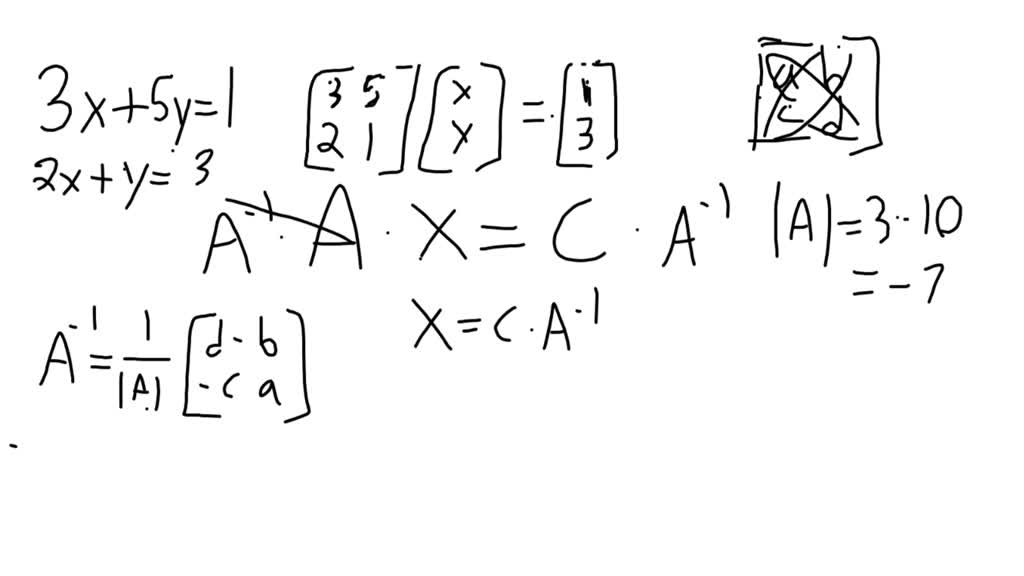 3x+5y=1
2x+y=3
[3 5
2 1] [x
y] = [1
3]
[a b
c d]
A⁻¹ · A · X = C · A⁻¹
|A| = 3-10
= -7
X = C · A⁻¹
A⁻¹ = 1/|A| [d -b
-c a]